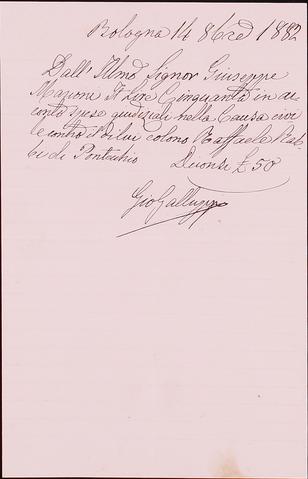 Bologna 14 8bre 1882
Dall' Illmo Signor Giuseppe
Mazoni It Lire Cinquanta in ac
conto spese giudiziali nella Causa civi
le contro il di lui colono Raffaele
bi di Pontecchio Diconsi £ 50
Gio Galluppi